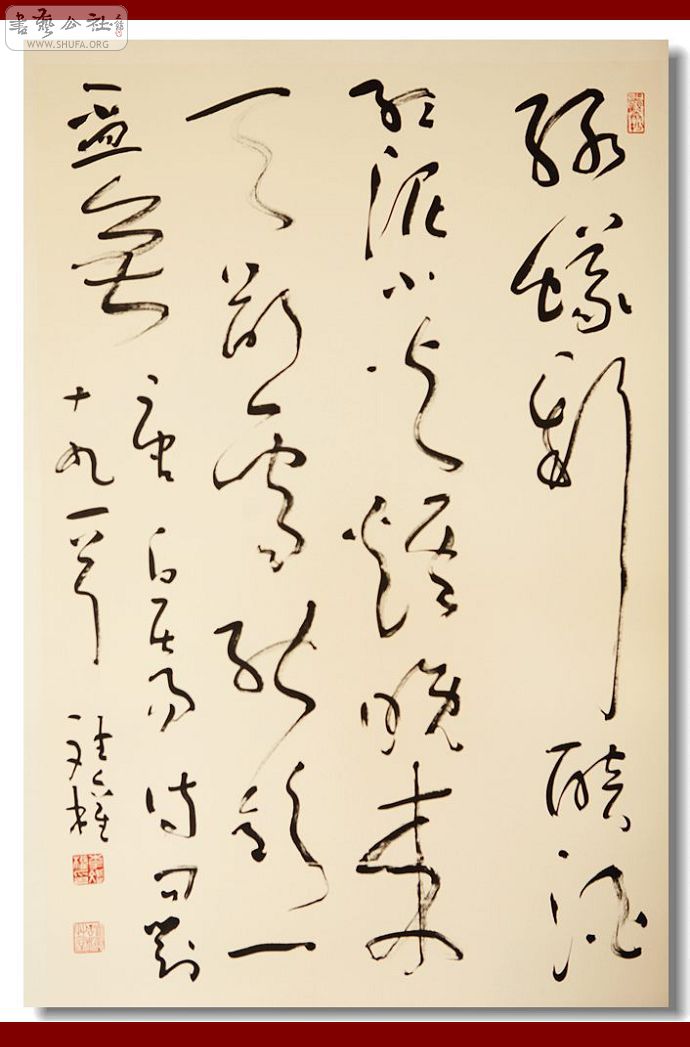 書藝公社
WWW.SHUFA.ORG
綠蟻新醅酒
紅泥小火爐晚來
天欲雪能飲一
盃無
唐白居易詩問劉
十九一首